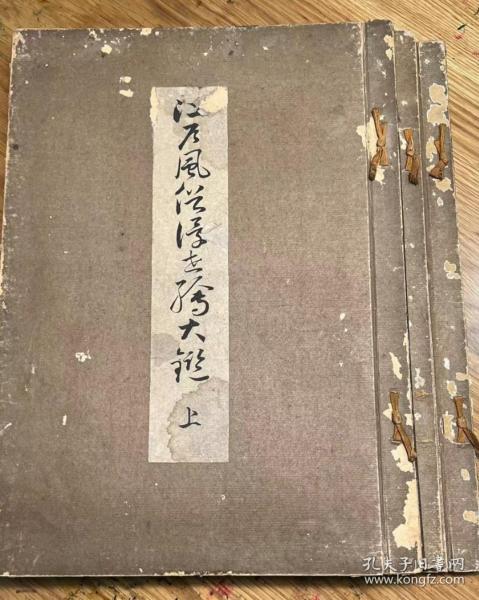 江戸風俗浮世繪大鑑 上
孔夫子旧书网
www.kongfz.com